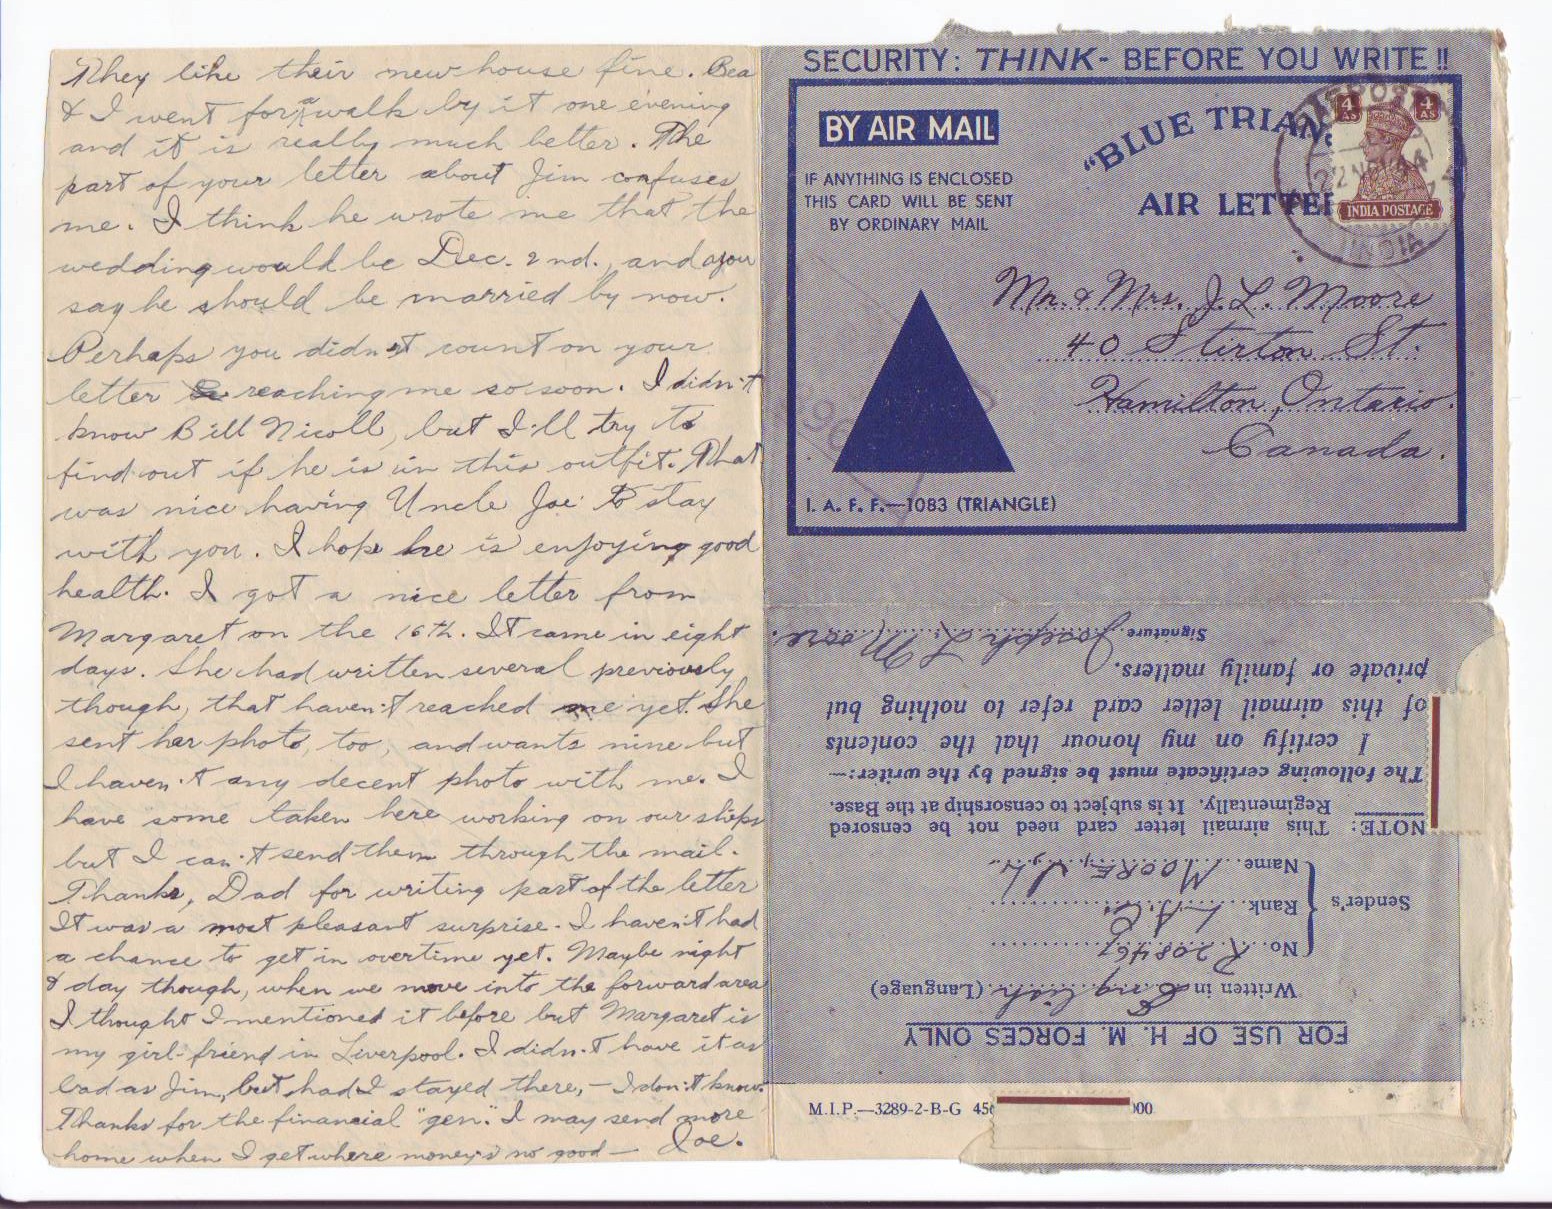 They like their new house fine. Bea
& I went for a walk by it one evening
and it is really much better. The
part of your letter about Jim confuses
me. I think he wrote me that the
wedding would be Dec. 2nd., and you
say he should be married by now.
Perhaps you didn't count on your
letter reaching me so soon. I didn't
know Bill Nicoll, but I'll try to
find out if he is in this outfit. That
was nice having Uncle Joe to stay
with you. I hope he is enjoying good
health. I got a nice letter from
Margaret on the 16th. It came in eight
days. She had written several previously
though, that haven't reached me yet. She
sent her photo, too, and wants mine but
I haven't any decent photo with me. I
have some taken here working on our ships
but I can't send them through the mail.
Thanks, Dad for writing part of the letter
It was a most pleasant surprise. I haven't had
a chance to get in overtime yet. Maybe night
& day though, when we move into the forward area
I thought I mentioned it before but Margaret is
my girl-friend in Liverpool. I didn't have it as
bad as Jim, but had I stayed there, – I don't know.
Thanks for the financial "gen". I may send more
home when I get where money's no good — Joe.
SECURITY: THINK- BEFORE YOU WRITE!!
BY AIR MAIL
IF ANYTHING IS ENCLOSED
THIS CARD WILL BE SENT
BY ORDINARY MAIL
"BLUE TRIAN
AIR LETTE
4 AS 4 AS
INDIA POSTAGE
INDIA
Mr. & Mrs. J. L. Moore
40 Stirton St.
Hamilton, Ontario.
Canada.
I. A. F. F.—1083 (TRIANGLE)
FOR USE OF H. M. FORCES ONLY
Written in English (Language)
Sender's
No. R208467
Rank L.A.C.
Name MOORE, J.L.
NOTE: This airmail letter card need not be censored
Regimentally. It is subject to censorship at the Base.
The following certificate must be signed by the writer:—
I certify on my honour that the contents
of this airmail letter card refer to nothing but
private or family matters.
Signature Joseph L. Moore.
M.I.P.—3289-2-B-G 45 000